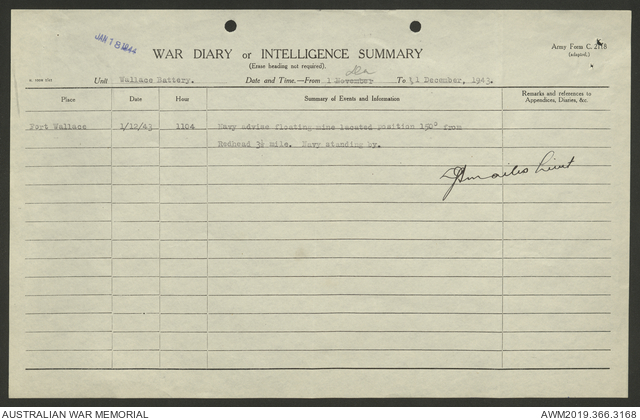 JAN 18 1944
WAR DIARY or INTELLIGENCE SUMMARY
(Erase heading not required).
Army Form C. 2118
(adapted.)
Unit Wallace Battery.
Date and Time.—From 1 November Dec To 31 December, 1943.
Place Date Hour Summary of Events and Information Remarks and references to Appendices, Diaries, &c.
Fort Wallace 1/12/43 1104 Navy advise floating mine located position 150° from
Redhead 3½ mile. Navy standing by.
Lieut
AUSTRALIAN WAR MEMORIAL
AWM2019.366.3168